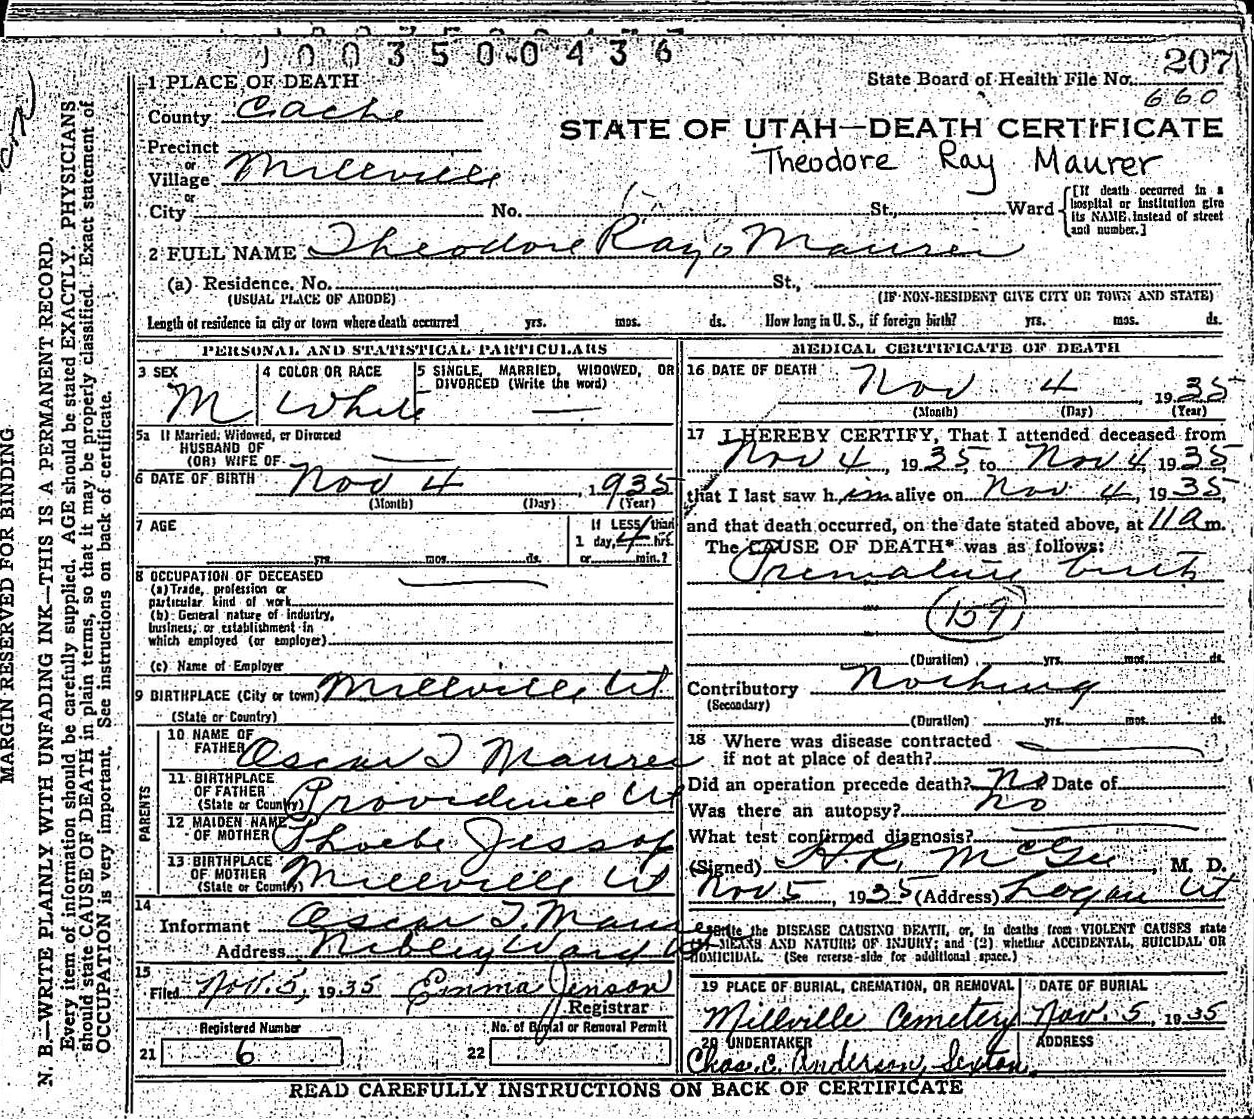 1003500436
207
State Board of Health File No.
660
1 PLACE OF DEATH
County Cache
STATE OF UTAH—DEATH CERTIFICATE
Precinct
or
Village Millville
Theodore Ray Maurer
or
City No. St., Ward
[If death occurred in a hospital or institution give its NAME instead of street and number.]
2 FULL NAME Theodore Ray Maurer
(a) Residence. No. St.,
(USUAL PLACE OF ABODE) (IF NON-RESIDENT GIVE CITY OR TOWN AND STATE)
Length of residence in city or town where death occurred yrs. mos. ds. How long in U. S., if foreign birth? yrs. mos. ds.
PERSONAL AND STATISTICAL PARTICULARS
3 SEX
M
4 COLOR OR RACE
White
5 SINGLE, MARRIED, WIDOWED, OR
DIVORCED (Write the word)
—
5a If Married, Widowed, or Divorced
HUSBAND OF
(OR) WIFE OF —
6 DATE OF BIRTH Nov 4, 1935
(Month) (Day) (Year)
7 AGE
yrs. mos. ds.
If LESS than
1 day, 4 hrs.
or min.?
8 OCCUPATION OF DECEASED
(a) Trade, profession or
particular kind of work
(b) General nature of industry,
business, or establishment in
which employed (or employer)
(c) Name of Employer
9 BIRTHPLACE (City or town) Millville Ut
(State or Country)
PARENTS
10 NAME OF
FATHER Oscar T Maurer
11 BIRTHPLACE
OF FATHER
(State or Country) Providence Ut
12 MAIDEN NAME
OF MOTHER Phoebe Jessop
13 BIRTHPLACE
OF MOTHER
(State or Country) Millville Ut
14
Informant Oscar T. Maurer
Address Nibley Ward Ut
15
Filed Nov. 5, 1935 Emma Jenson
Registrar
Registered Number
21 6
No. of Burial or Removal Permit
22
MEDICAL CERTIFICATE OF DEATH
16 DATE OF DEATH Nov 4, 1935
(Month) (Day) (Year)
17 I HEREBY CERTIFY, That I attended deceased from
Nov 4, 1935 to Nov 4, 1935,
that I last saw him alive on Nov 4, 1935,
and that death occurred, on the date stated above, at 11 a m.
The CAUSE OF DEATH* was as follows:
Premature birth
159
(Duration) yrs. mos. ds.
Contributory Nothing
(Secondary)
(Duration) yrs. mos. ds.
18 Where was disease contracted
if not at place of death?
Did an operation precede death? No Date of
Was there an autopsy? No
What test confirmed diagnosis?
(Signed) H R McGee, M. D.
Nov 5, 1935 (Address) Logan Ut
*State the DISEASE CAUSING DEATH, or, in deaths from VIOLENT CAUSES state
MEANS AND NATURE OF INJURY; and (2) whether ACCIDENTAL, SUICIDAL OR
HOMICIDAL. (See reverse side for additional space.)
19 PLACE OF BURIAL, CREMATION, OR REMOVAL
Millville Cemetery
DATE OF BURIAL
Nov. 5, 1935
20 UNDERTAKER
Chas. C. Anderson, Sexton.
ADDRESS
READ CAREFULLY INSTRUCTIONS ON BACK OF CERTIFICATE
MARGIN RESERVED FOR BINDING
N. B.—WRITE PLAINLY WITH UNFADING INK—THIS IS A PERMANENT RECORD.
Every item of information should be carefully supplied. AGE should be stated EXACTLY. PHYSICIANS
should state CAUSE OF DEATH in plain terms, so that it may be properly classified. Exact statement of
OCCUPATION is very important. See instructions on back of certificate.